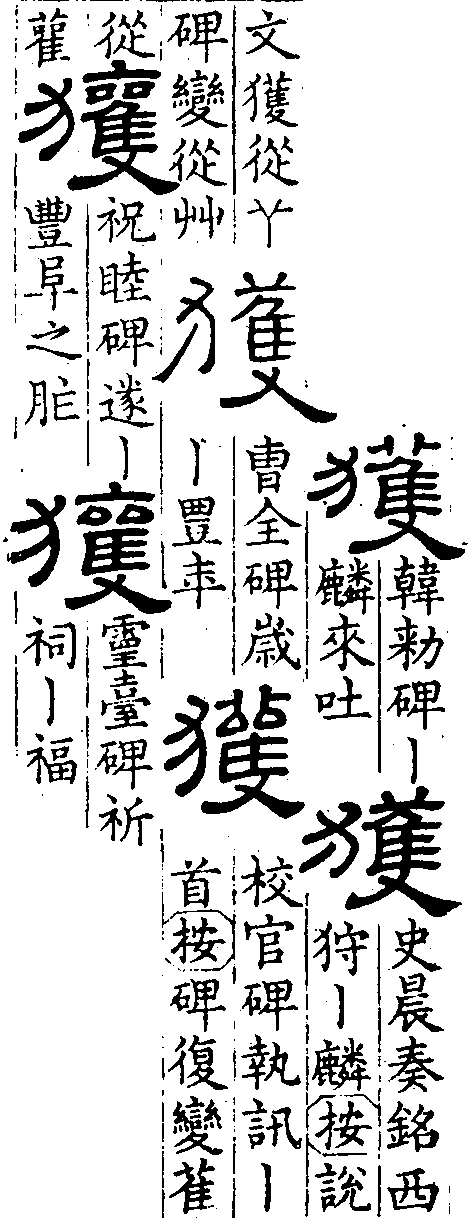 獲
韓勑碑丨
麟來吐
獲
史晨奏銘西
狩丨麟按說
文獲從丫
碑變從艸
獲
曹全碑歲
丨豐年
獲
校官碑執訊丨
首按碑復變雈
從
雚
獲
祝睦碑遂丨
豐阜之胙
獲
靈臺碑祈
祠丨福